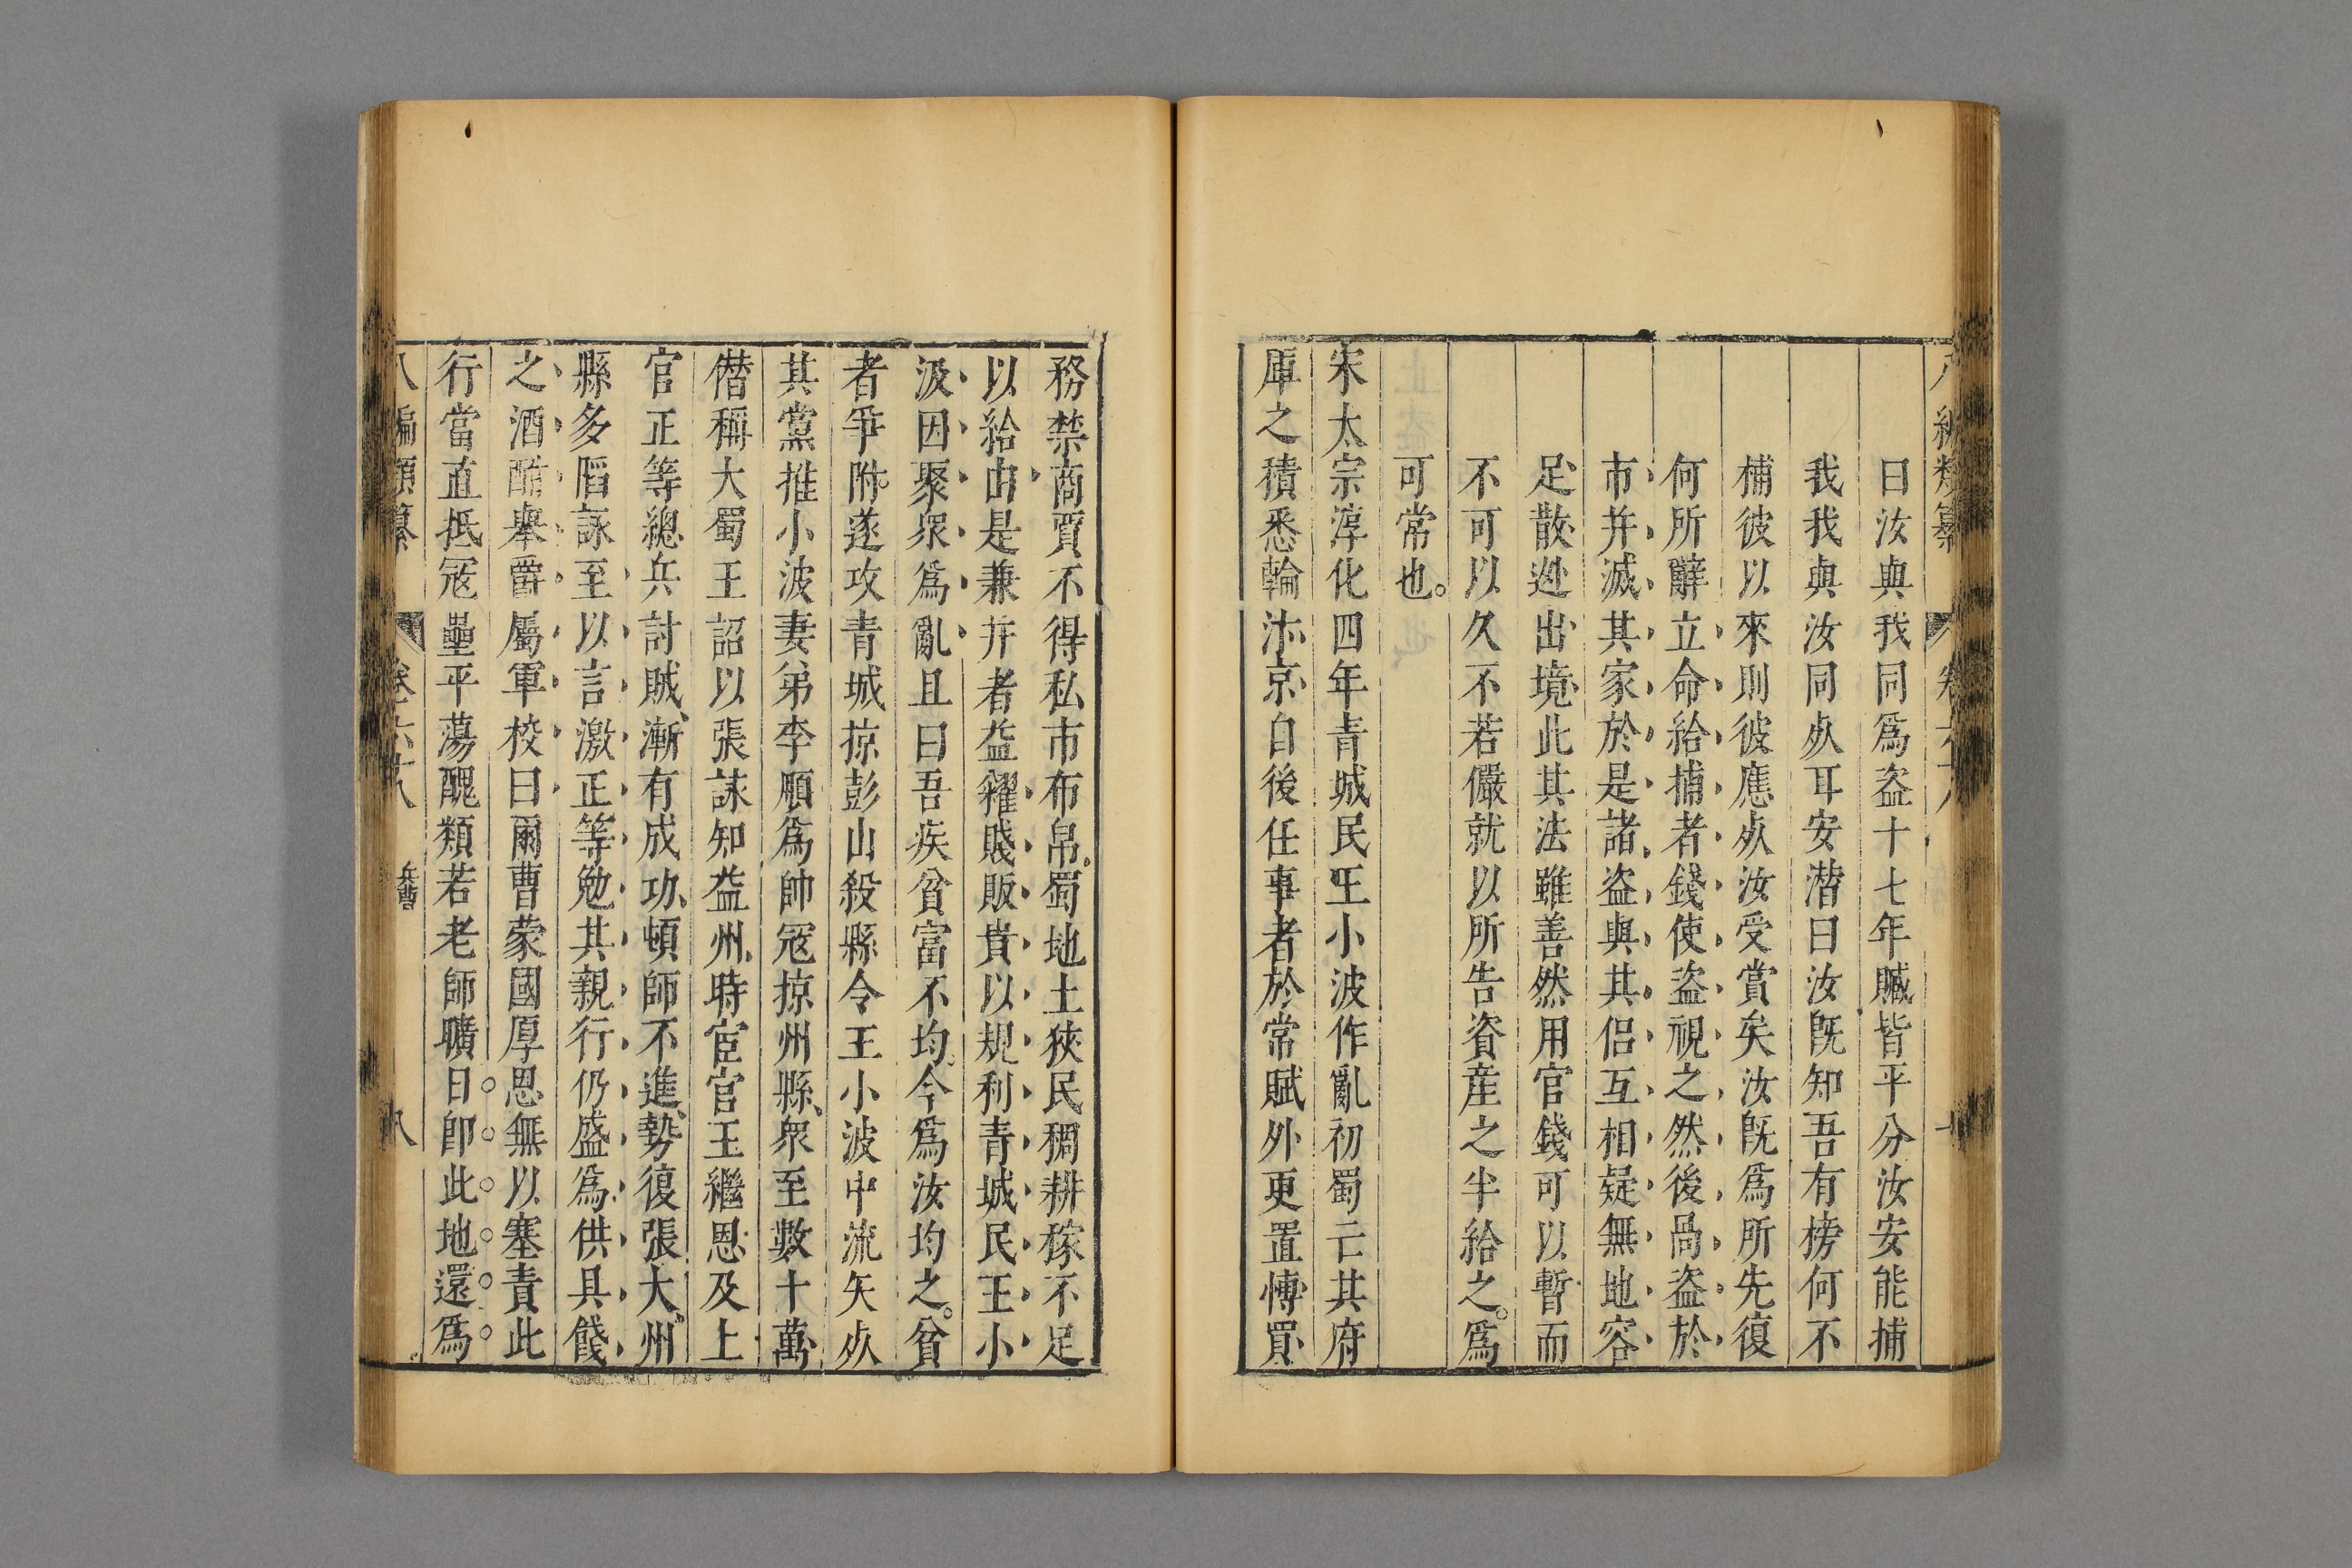 八編類纂 卷六十八
曰汝與我同爲盗十七年贓皆平分汝安能捕
我我與汝同㱕耳安潜曰汝旣知吾有榜何不
捕彼以來則彼應㱕汝受賞矣汝旣爲所先復
何所辭立命給捕者錢使盗視之然後咼盗於
市并滅其家於是諸盗與其侣互相疑無地容
足散迯出境此其法雖善然用官錢可以暫而
不可以久不若儼就以所告資產之半給之爲
可常也
宋太宗淳化四年青城民王小波作亂初蜀亡其府
庫之積悉輪汴京自後任事者於常賦外更置愽買
務禁商賈不得私市布帛蜀地土狹民稠耕稼不足
以給由是兼并者益糴賤販貴以規利青城民王小
波因聚衆爲亂且曰吾疾貧富不均今爲汝均之貧
者爭附遂攻青城掠彭山殺縣令王小波中流矢㱕
其黨推小波妻弟李順爲帥宼掠州縣衆至數十萬
僣稱大蜀王詔以張詠知益州時宦官王繼恩及上
官正等總兵討賊漸有成功頓師不進勢復張大州
縣多䧟詠至以言激正等勉其親行仍盛爲供具餞
之酒酣舉爵屬軍校曰爾曹蒙國厚恩無以塞責此
行當直抵宼壘平蕩醜類若老師曠日卽此地還爲
八編類纂 卷六十八 兵曹 八